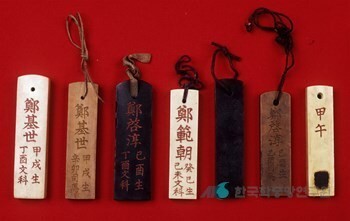 鄭基世
甲戌生
丁酉文科
鄭基世
甲戌生
辛卯
鄭啓淳
己酉生
文科
鄭範朝
癸巳生
己未文科
鄭啓淳
甲午
한국학중앙연구원